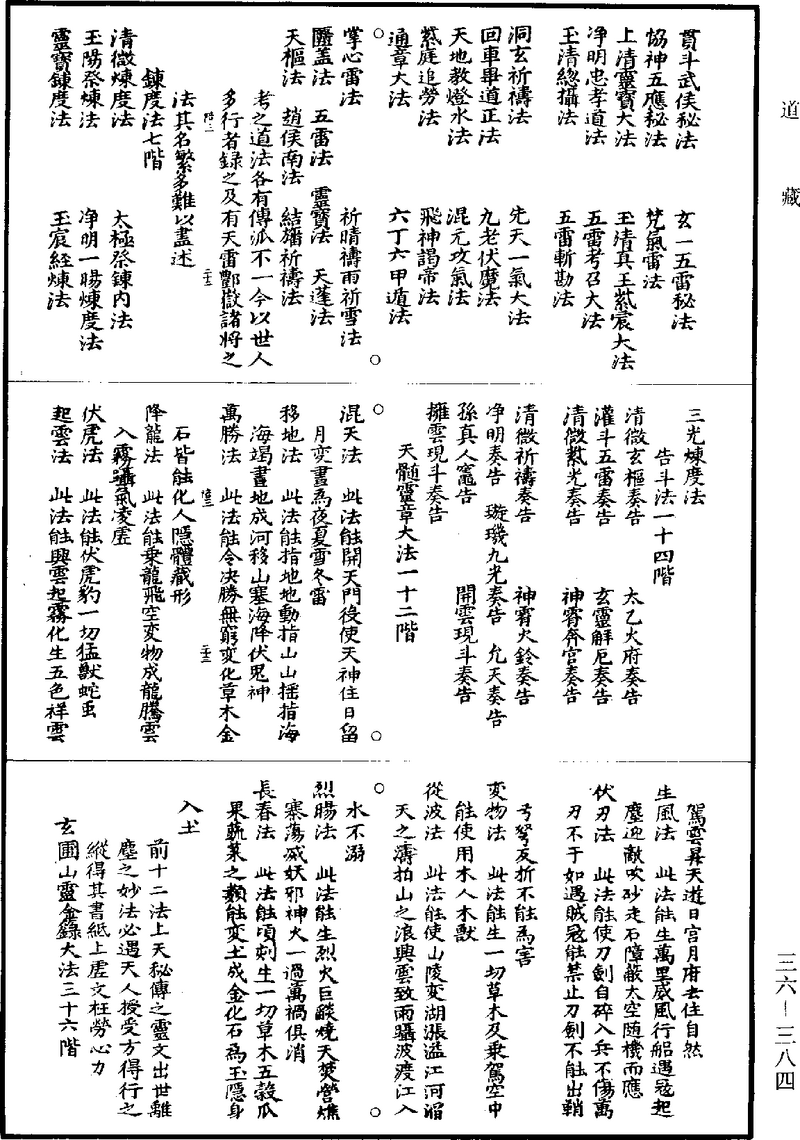 道藏
貫斗武侯秘法　玄一五雷秘法
協神五應秘法　梵氣雷法
上清靈寶大法　玉清真王紫宸大法
净明忠孝道法　五雷考召大法
玉清緫攝法　五雷斬勘法
洞玄祈禱法　先天一氣大法
回車畢道正法　九老伏魔法
天地教燈水法　混元攻氣法
紫庭追勞法　飛神謁帝法
通章大法　六丁六甲遁法
掌心雷法　祈晴禱雨祈雪法
匾盖法　五雷法　靈寶法　天蓬法
天樞法　趙侯南法　結璠祈禱法
考之道法各有傳派不一今以世人
多行者錄之及有天雷酆嶽諸將之
法其名繁多難以盡述
鍊度法七階
清微煉度法　太極祭鍊内法
玉陽祭煉法　净明一暘煉度法
靈寶鍊度法　玉宸経煉法
三光煉度法
告斗法一十四階
清微玄樞奏告　太乙火府奏告
灌斗五雷奏告　玄靈解厄奏告
清微紫光奏告　神霄奔宫奏告
清微祈禱奏告　神霄火鈴奏告
净明奏告　璇璣九光奏告　允天奏告
孫真人竈告　開雲現斗奏告
擁雲現斗奏告
天髓靈章大法一十二階
混天法　此法能開天門役使天神住日留
月变晝爲夜夏雪冬雷
移地法　此法能指地地動指山山摇指海
海竭畫地成河移山塞海降伏鬼神
萬勝法　此法能令决勝無窮变化草木金
石皆能化人隱體藏形
降龍法　此法能乗龍飛空变物成龍騰雲
入霧躡氣凌虗
伏虎法　此法能伏虎豹一切猛獸蛇虫
起雲法　此法能興雲起霧化生五色祥雲
駕雲昇天遊日宫月府去住自然
生風法　此法能生萬里威風行船遇冦起
塵迎敵吹砂走石障蔽太空随機而應
伏刃法　此法能使刀劍自碎入兵不傷萬
刃不干如遇賊冦能禁止刀劍不能出鞘
弓弩反折不能爲害
変物法　此法能生一切草木及乗駕空中
能使用木人木獸
從波法　此法能使山陵变湖漲溢江河湄
天之濤拍山之浪興雲致雨躡波渡江入
水不溺
烈暘法　此法能生烈火巨燄燒天焚營燋
寨蕩滅妖邪神火一過萬禍俱消
長春法　此法能頃刻生一切草木五榖瓜
果蔬菜之類能变土成金化石爲玉隱身
入土
前十二法上天秘傳之靈文出世離
塵之妙法必遇天人授受方得行之
縱得其書紙上虗文枉勞心力
玄圃山靈金錄大法三十六階
三六—三八四